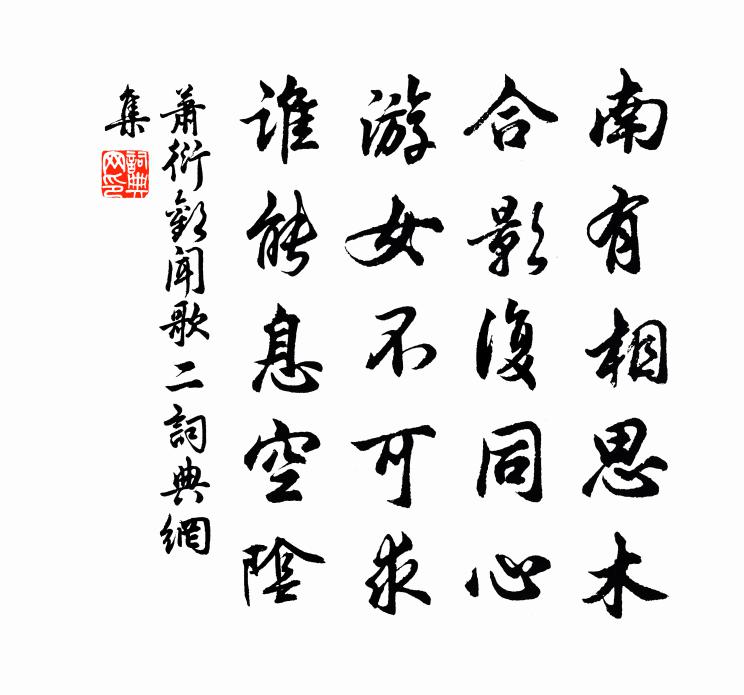 南有相思木
合影復同心
游女不可求
誰能息空陰
蕭衍歡聞歌二詞典網
集
詞典
网印